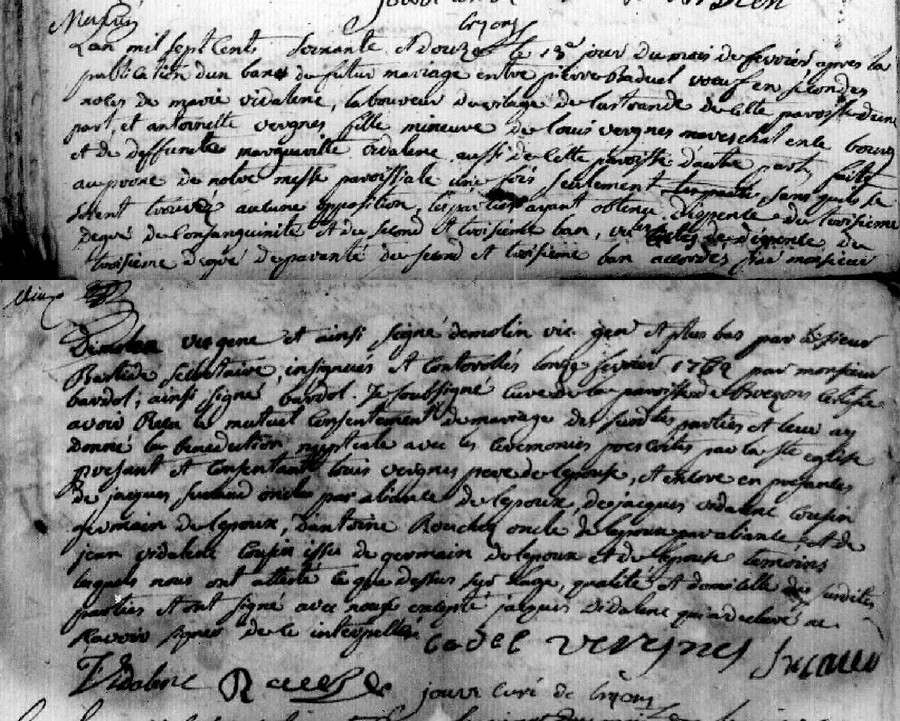 Brezons
L'an mil sept cents soixante et douze le 13e jour du mois de fevrier apres la
publication d'un banc du futur mariage entre pierre veuf en secondes
noces de marie vidalenc, laboureur du vilage de Lustrande de cette paroisse d'une
part, et antoinette vergnes fille mineure de Louis vergnes mareschal en ce bourg
et de deffuncte margueritte vidalenc aussi de cette paroisse d'autre part, faite
au prone de notre messe paroissiale une fois seulement sans qu'il se
soient trouvée aucune opposition, les parties ayant obtenu dispense du troisieme
degré de consanguinité et du second et troisieme ban, veu de dispense du
troisieme degré de paranté du second et troisieme ban accordés par monsieur
vic gene et ainsi signé demolin vic. gen et plus bas par le sieur
Bastide secretaire, insignués et controlés le onze fevrier 1769 par monsieur
bardol; ainsi signé, bardol. Je soussigné curé de la paroisse de Brezons certifie
avoir Reçu le mutuel consentement de mariage des susdites parties et leur ay
donné la benediction nuptiale avec les ceremonies prescrites par la ste eglise
presant et consentant louis vergnes pere de l'epouse, et encore en presances
de jacques oncle par aliance de l'epoux, de jacques vidalenc cousin
germain de l'epoux, d'antoine oncle de l'epoux par aliance et de
jean vidalenc cousin issu de germain de l'epoux et de l'epouse temoins
lesquels nous ont attesté ce que dessus sur l'age, qualité et domicille des susdites
parties et ont signé avec nous excepté jacques vidalenc qui a declaré ne
sçavoir signer de ce interpellé. vergnes
Vidalenc curé de Brezons